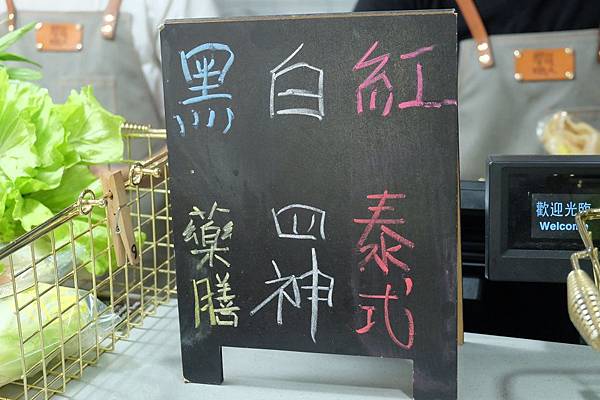 紅 泰式
白 四神
黑 藥膳
歡迎光臨
Welcom